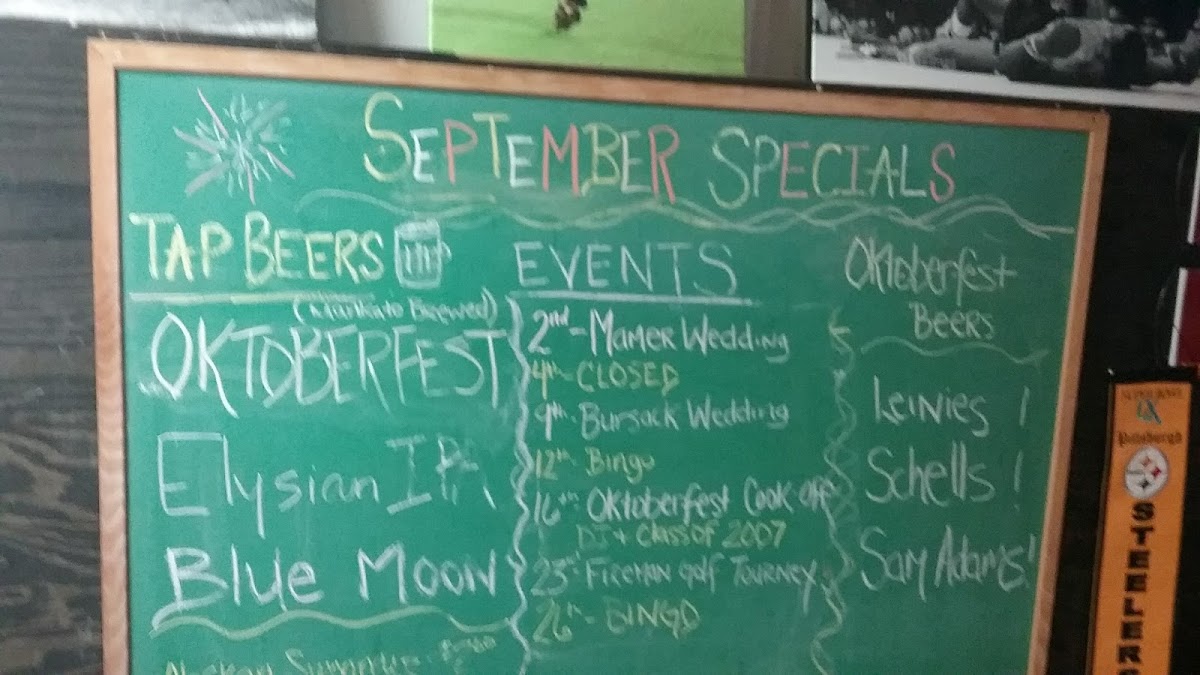 SEPTEMBER SPECIALS
TAP BEERS
(Mankato Brewed)
OKTOBERFEST
Elysian IPA
Blue Moon
EVENTS
2nd - Mamer Wedding
4th - CLOSED
9th - Bursack Wedding
12th - Bingo
16th - Oktoberfest Cook off
DJ + Class of 2007
23rd - Fireman golf Tourney
26th - BINGO
Oktoberfest
Beers
Leinies!
Schells!
Sam Adams!
SUPER BOWL
IX
Pittsburgh
Steelers
STEELERS